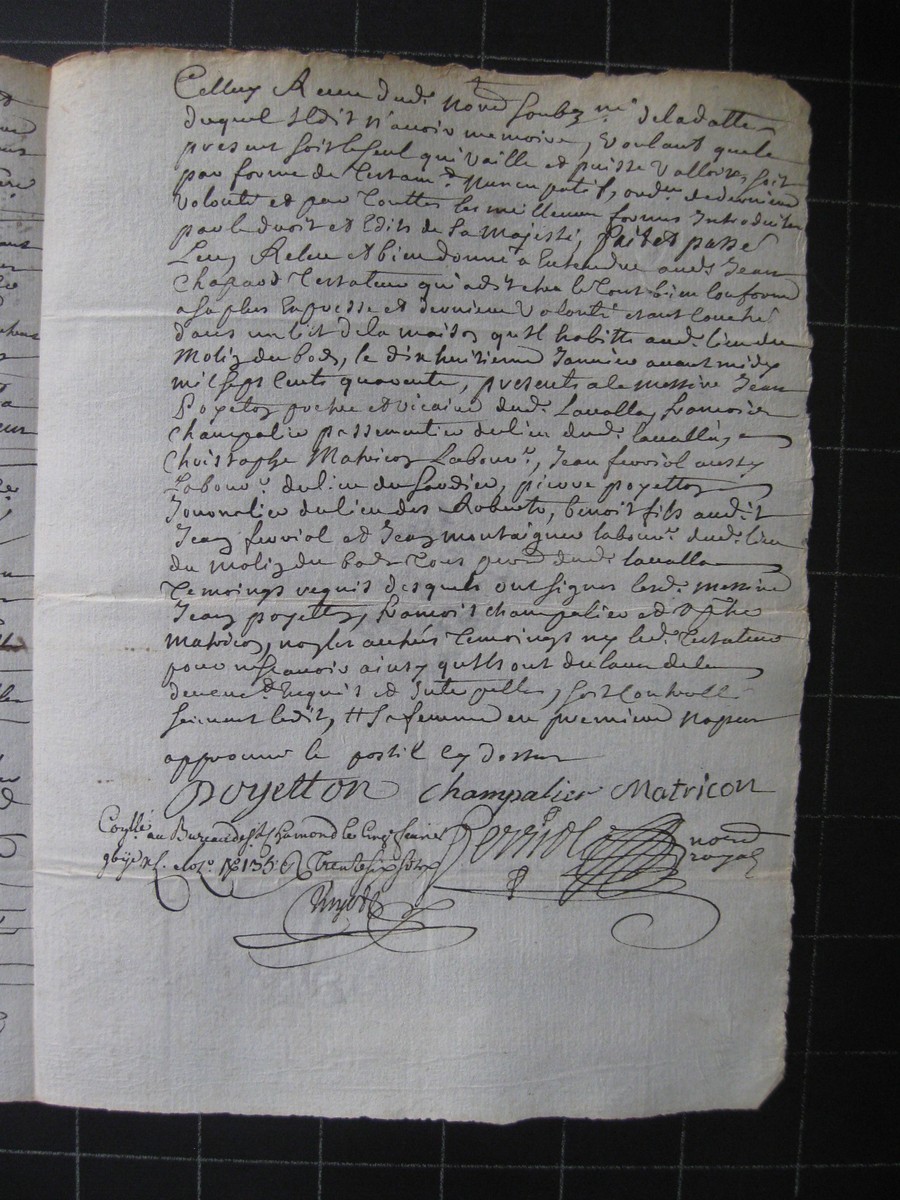 Celluy Receu dud.t nore soubz.né de la datte
duquel Il dit n'avoir memoire, Voulant que le
present soit le seul qui Vaille et puisse Valloir, soit
par forme de Testam.t Nuncupatif, ou de derniere
Volonté et par Touttes les meilleures formes Introduites
par le droit et Edits de Sa Majesté, fait et passé
Leu, Releu et bien donné a Entendre aud.t Jean
Chapard Testateur qui a dit etre le Tout bien conforme
a sa plus Expresse et derniere Volonté etant couché
dans un lict de la maison qu'Il habitte aud. lieu du
Molin du bost, le dix huitieme Janvier avant midy
mil sept Cents quarante, presents a ce messire Jean
Poyeton prestre et vicaire dud. Lavalla, francois
Champalier passementier du lieu dud. lavalla,
Christophe Matricon Labour.r, Jean ferriol aussy
Labour.r du lieu du , pierre poyetton
Journalier du lieu des Roberts, benoit fils aud.t
Jean ferriol et Jean montaigner labour.r dud. lieu
du molin du bost Tous par.se dud. lavalla
Temoings requis desquels ont signes led. messire
Jean poyetton, francois champalier et Xphe
Matricon, non les autres Temoings ny led. Testateur
pour ne scavoir ainsy qu'Ils ont declaré de ce
deuem.t Enquis et Interpelles, soit controllé
suivant ledit, # Sa femme en premiere nopces
approuvé le postil cy dessus
Poyetton Champalier Matricon
Coнllé au Bureau de St Chamond le Cinq 
 Trente six sols
Ferriol nore royal